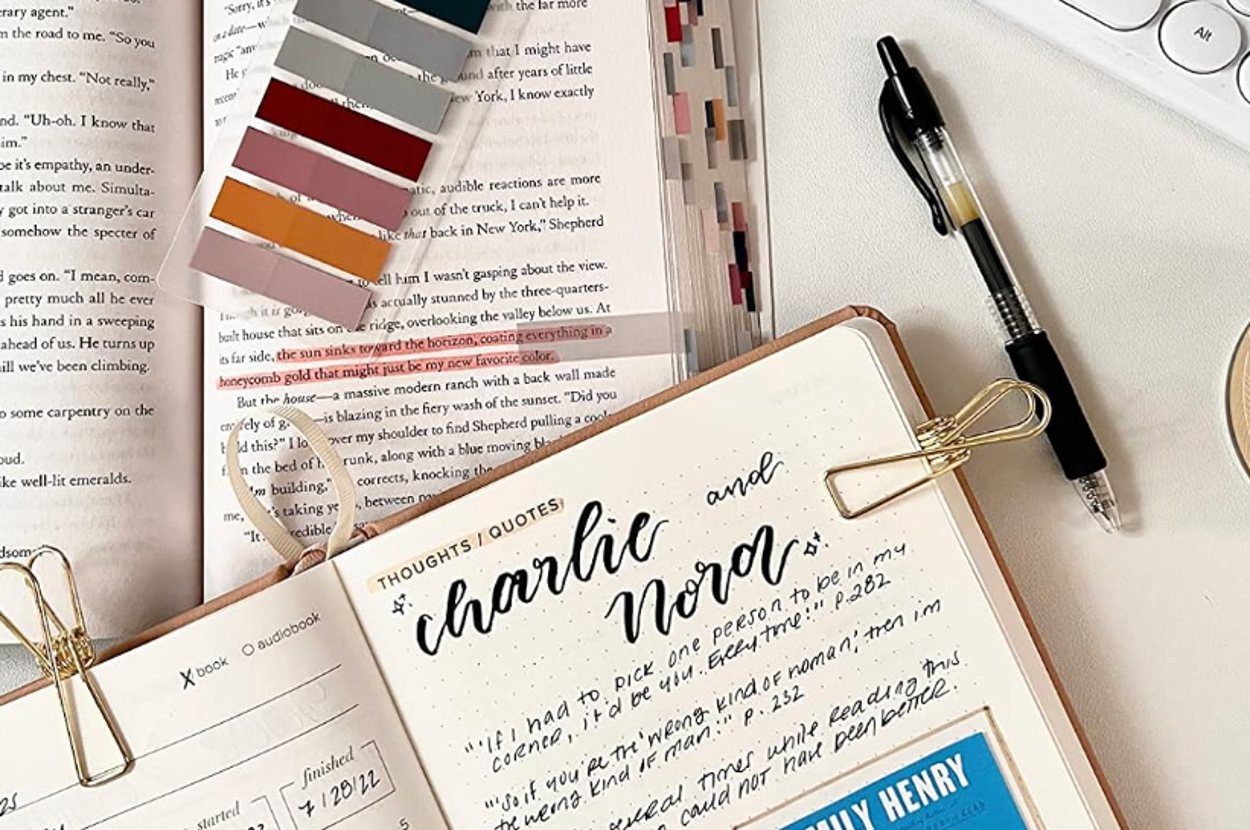 rary agent."
n the road to me. "So you
in my chest. "Not really,"
nd. "Uh-oh. I know that
im."
be it's empathy, an under-
talk about me. Simulta-
y got into a stranger's car
somehow the specter of
d goes on. "I mean, com-
pretty much all he ever
s his hand in a sweeping
ahead of us. He turns up
ill we've been climbing.
o some carpentry on the
oud.
ike well-lit emeralds.
"Sorry, it's
with the far more
on a date—
magic
m that I might have
He
the ground after years of little
New York, I know exactly
atic, audible reactions are more
out of the truck, I can't help it.
like that back in New York," Shepherd
tell him I wasn't gasping about the view.
as actually stunned by the three-quarters-
built house that sits on the ridge, overlooking the valley below us. At
its far side, the sun sinks toward the horizon, coating everything in a
honeycomb gold that might just be my new favorite color.
But the house—a massive modern ranch with a back wall made
of —is blazing in the fiery wash of the sunset. "Did you
this?" I over my shoulder to find Shepherd pulling a
the bed of trunk, along with a blue moving
building," corrects, knocking the
me, taking between
"It
Alt
THOUGHTS / QUOTES
charlie and
Nora
"'If I had to pick one person to be in my
corner, it'd be you. Every time!" p.282
"'So if you're the 'wrong kind of woman,' then I'm
the wrong kind of man!'" p. 232
several times while reading this
could not have been better.
X book ○ audiobook
started
finished
7/28/22
5
MILY HENRY